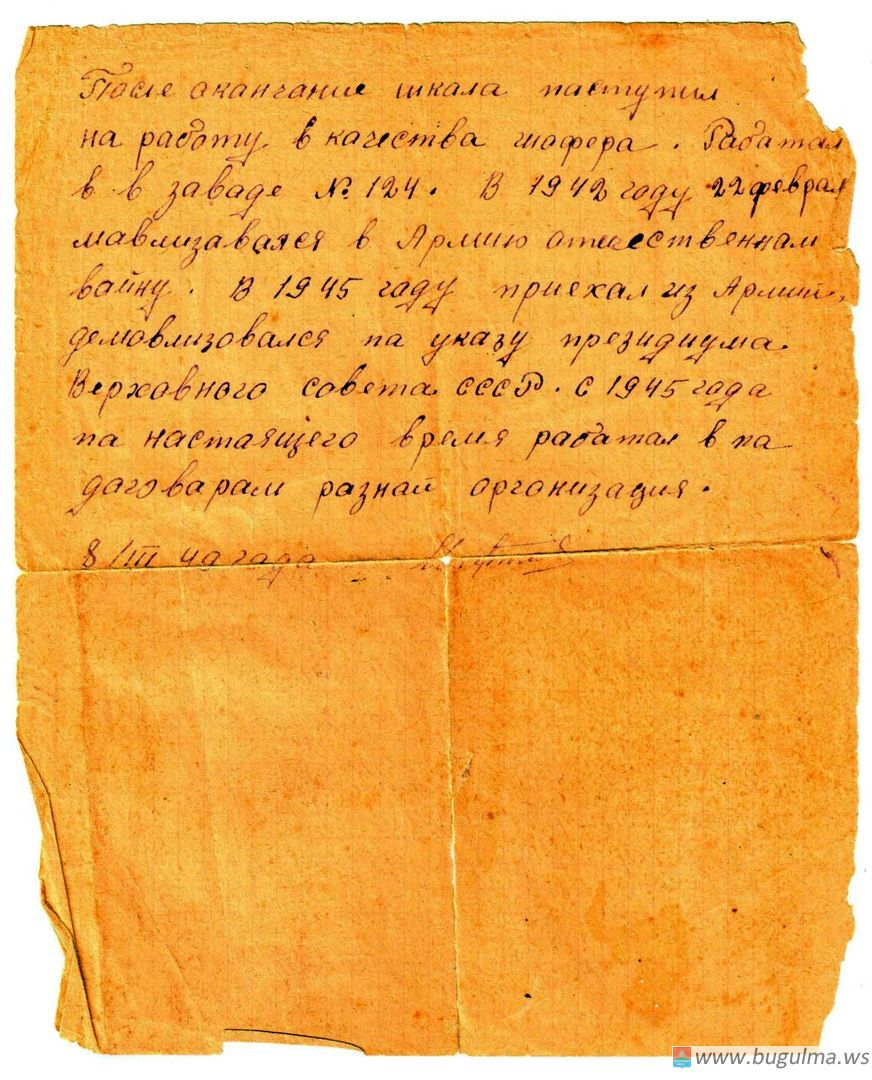 После аканчание шкала паступил
на работу в качества шафера. Работал
в в заваде № 124. В 1942 году 22 феврал
мавлизавался в Армию отечественнам
вайну. В 1945 году приехал из Армий,
демовлизовался па указу президиума
Верховного совета СССР. С 1945 года
па настаящего время работал в па
даговарам разнай организация.
8/III 49 года
www.bugulma.ws